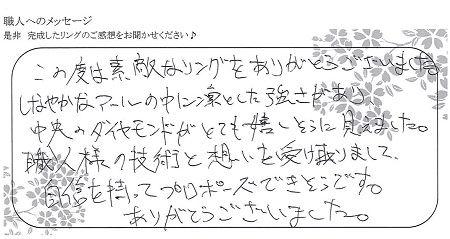 職人へのメッセージ
是非 完成したリングのご感想をお聞かせください♪
この度は素敵なリングをありがとうございました
しなやかなアームの中に凛とした強さがあり、
中央のダイヤモンドがとても嬉しそうに見えました。
職人様の技術と想いを受け取りまして、
自信を持ってプロポーズできそうです。
ありがとうございました。